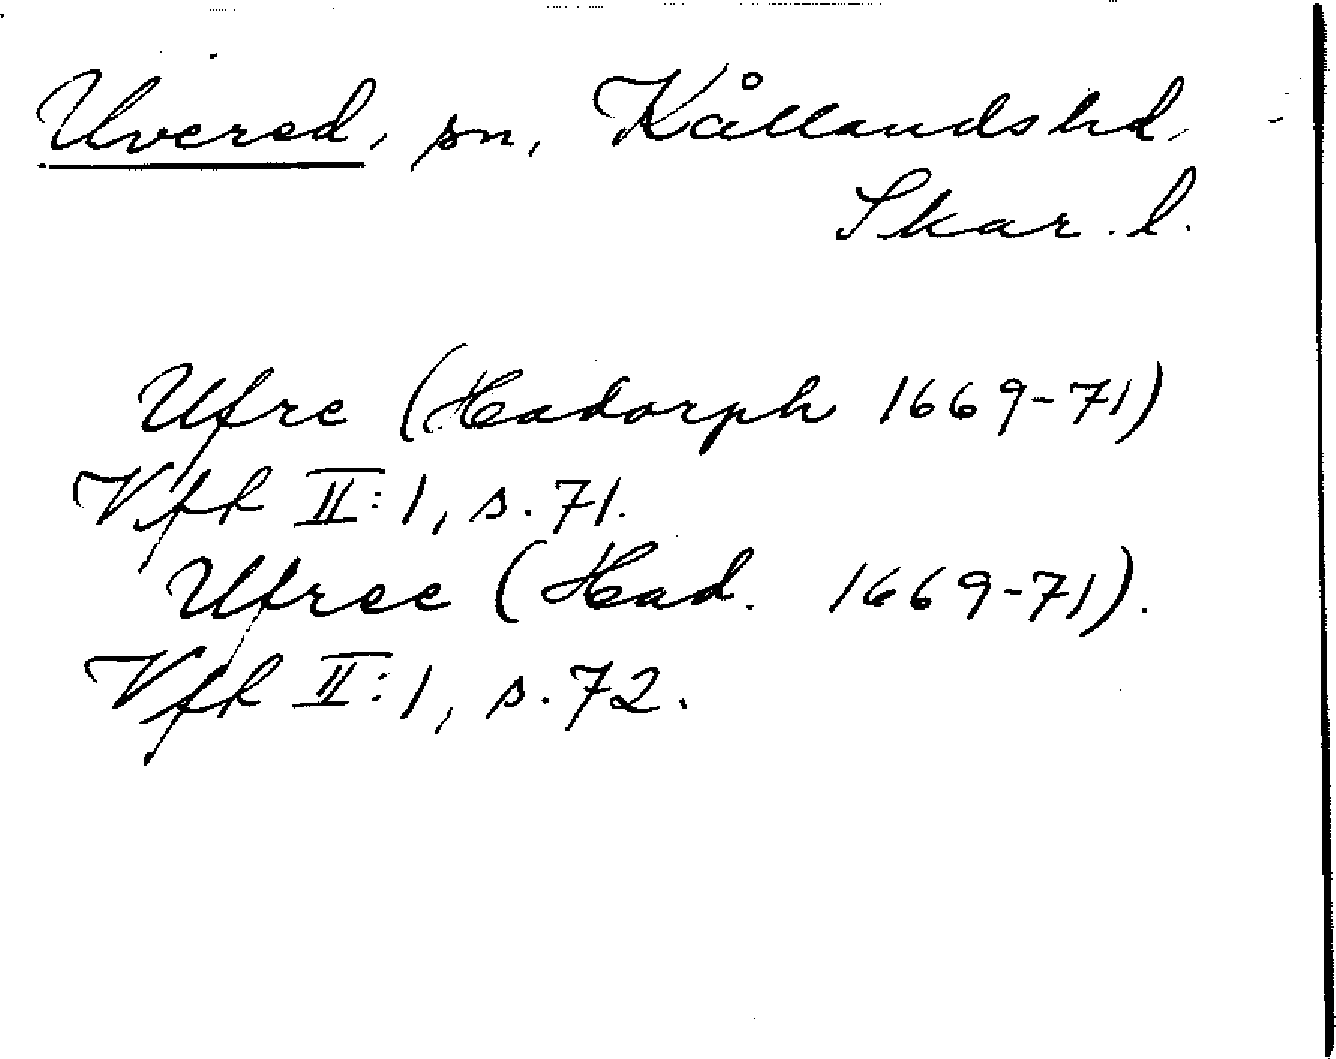 Uvered, sn, Kållands hd,
Skar. l.
Ufre (Hadorph 1669-71)
Vff II:1, s. 71.
Ufree (Had. 1669-71).
Vff II:1, s. 72.